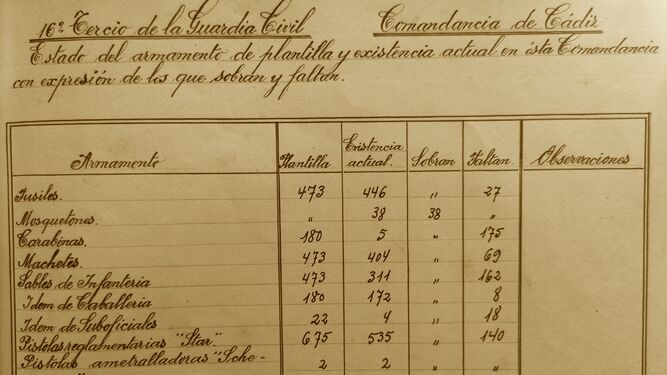 16º Tercio de la Guardia Civil Comandancia de Cádiz
Estado del armamento de plantilla y existencia actual en ésta Comandancia
con expresión de los que sobran y faltan.
Armamento Plantilla Existencia actual. Sobran Faltan. Observaciones
Fusiles. 473 446 " 27
Mosquetones. " 38 38 "
Carabinas. 180 5 " 175
Machetes. 473 404 " 69
Sables de Infantería 473 311 " 162
Idem de Caballería 180 172 " 8
Idem de Suboficiales 22 4 " 18
Pistolas reglamentarias "Star". 675 535 " 140
Pistolas ametralladoras "Sche- 2 2 " "